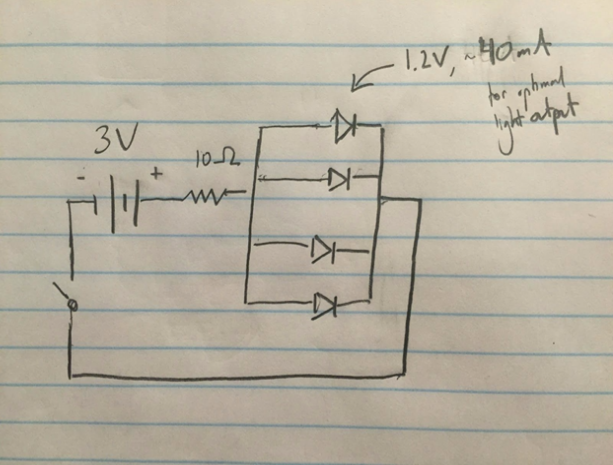 1.2V, ~40mA
for optimal
light output
3V
10Ω
- +